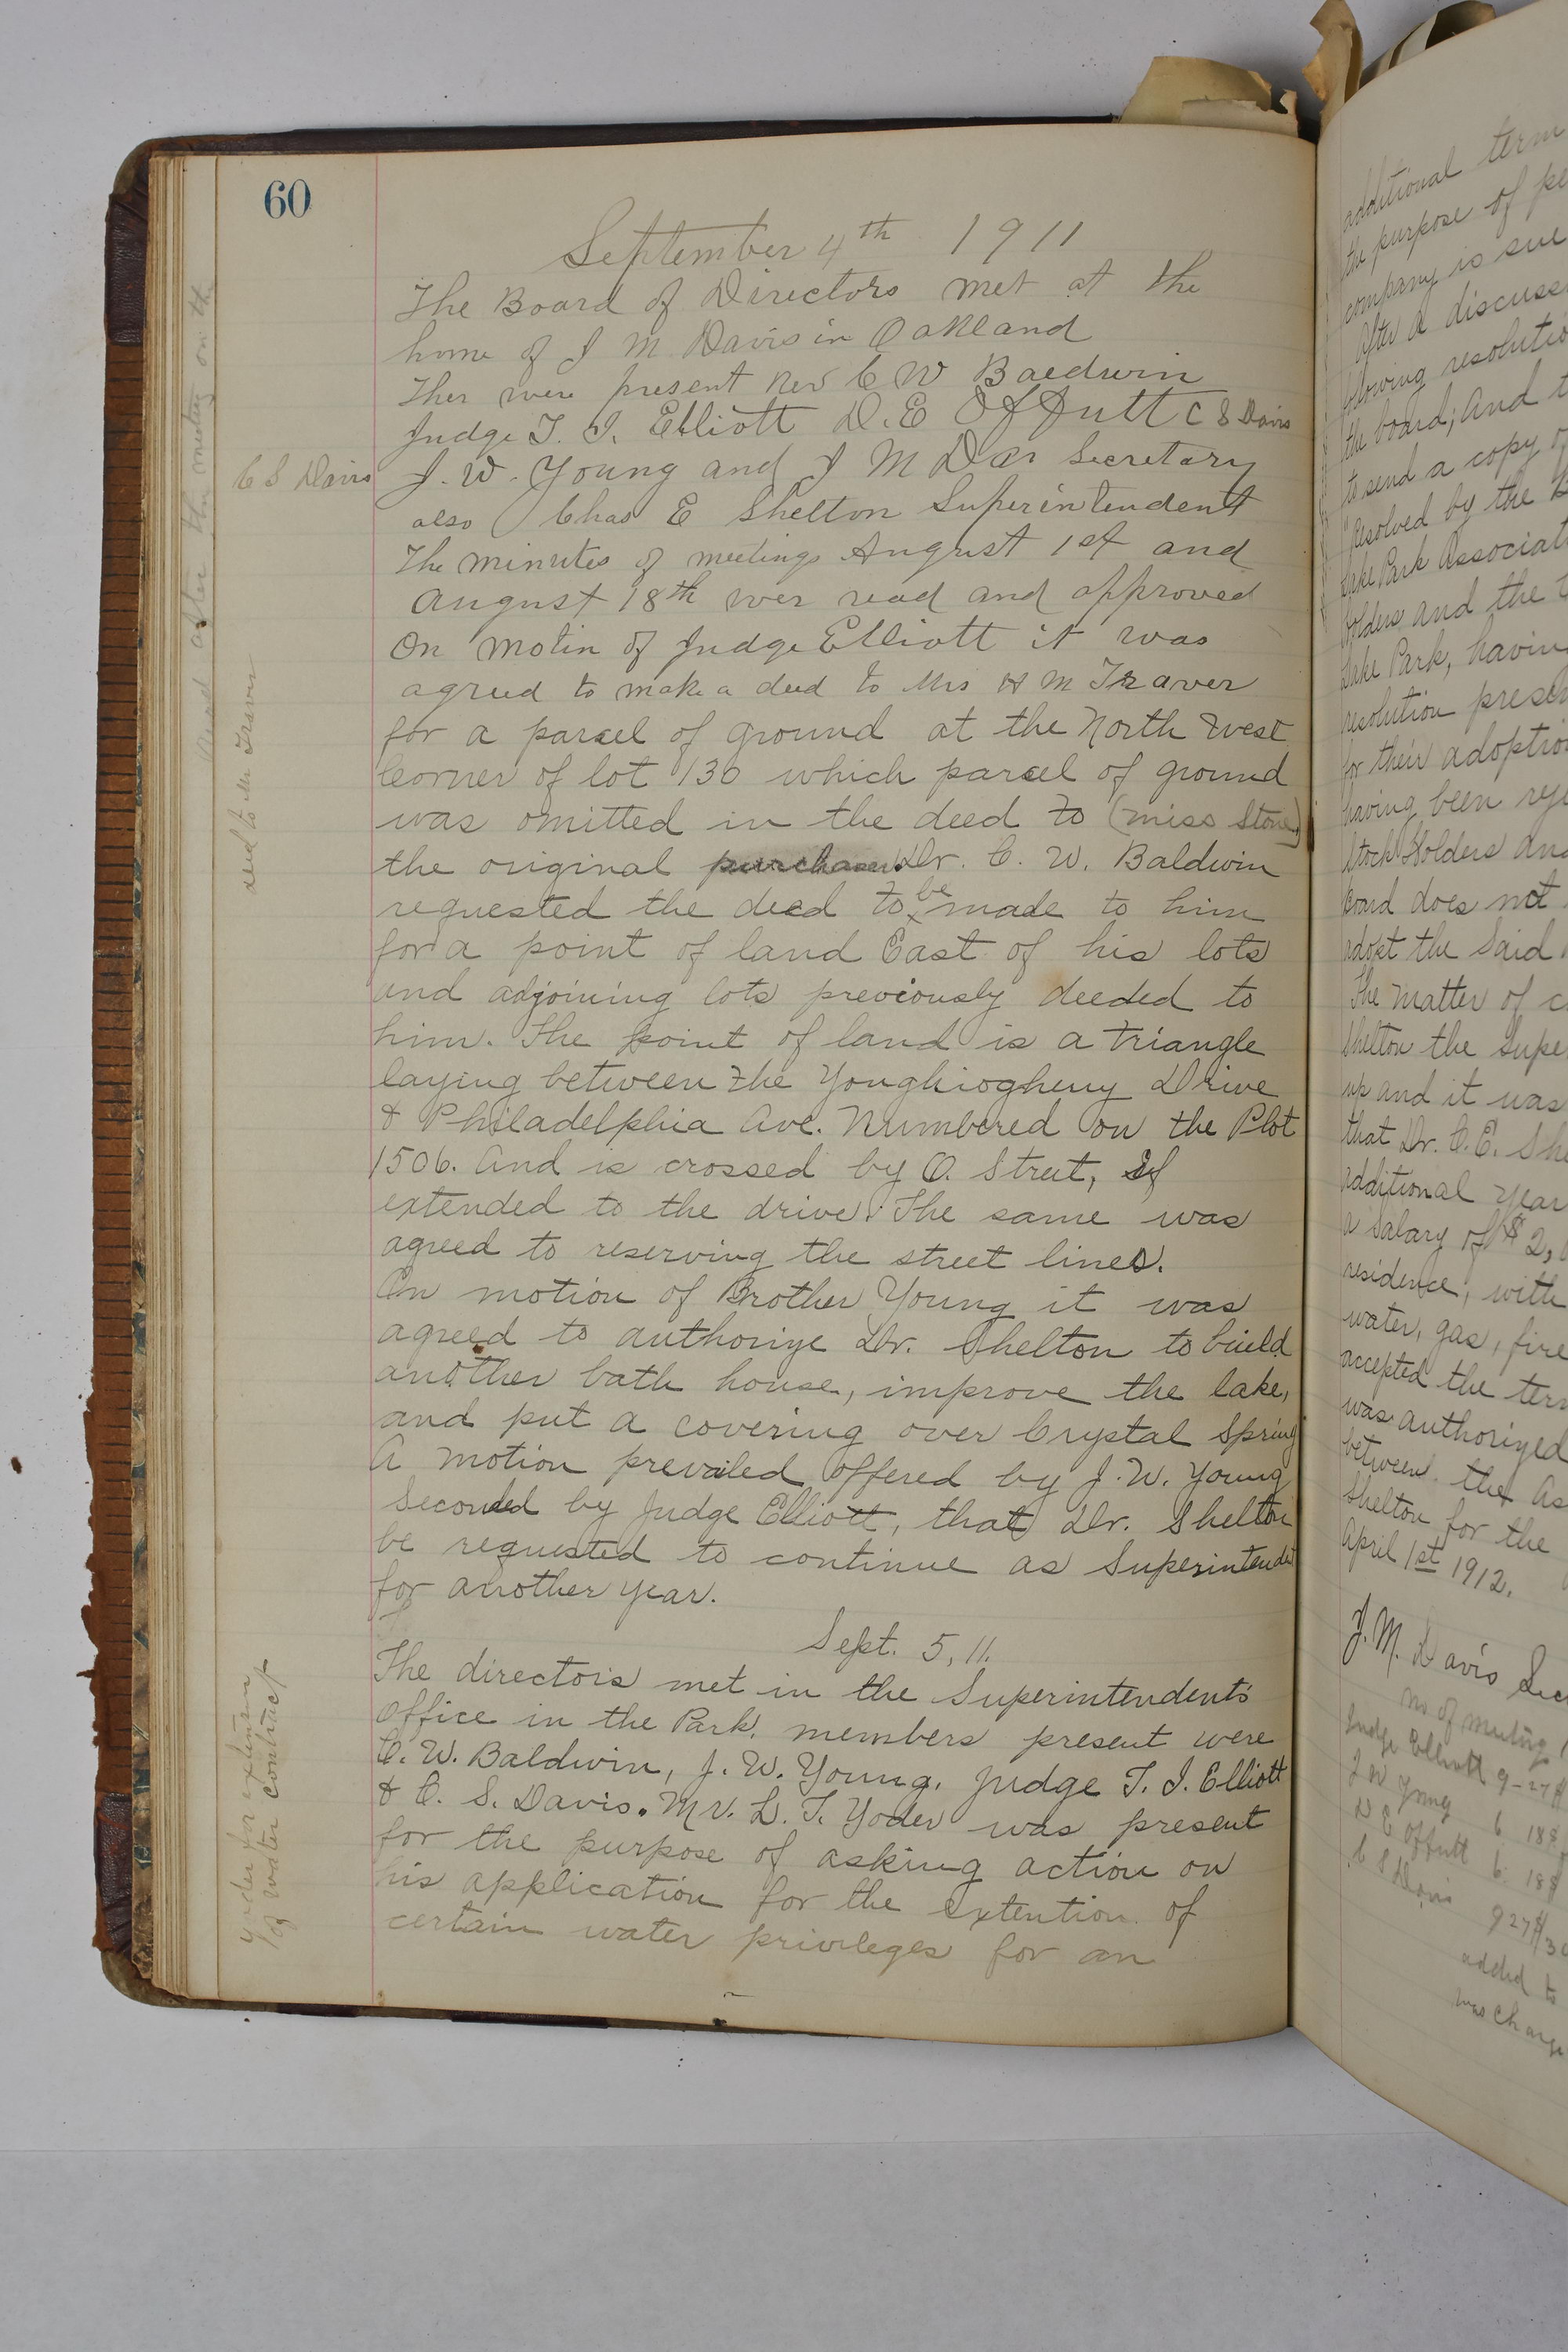 60
September 4th 1911
The Board of Directors met at the
home of J M Davis in Oakland
Ther were present Rev C W Baldwin
Judge T. I. Elliott D. E Offutt C S Davis
C S Davis
J. W. Young and J M Davis Secretary
also Chas E Shelton Superintendent
The minutes of meetings August 1st and
August 18th wer read and approved
On motin of Judge Elliott it was
agreed to make a deed to Mrs H M Traver
for a parcel of ground at the North West
Corner of lot 130 which parcel of ground
was omitted in the deed to (miss Stone)
the original purchaser. Dr. C. W. Baldwin
requested the deed to be made to him
for a point of land East of his lots
and adjoining lots previously deeded to
him. The point of land is a triangle
laying between the Youghiogheny Drive
& Philadelphia Ave. Numbered on the Plot
1506. And is crossed by O. Street, If
extended to the drive. The same was
agreed to reserving the street lines.
On motion of Brother Young it was
agreed to authorize Dr. Shelton to build
another bath house, improve the lake,
and put a covering over Crystal Spring
A motion prevailed offered by J. W. Young
Seconded by Judge Elliott, that Dr. Shelton
be requested to continue as Superintendent
for another year.
Sept. 5, 11.
The directors met in the Superintendents
Office in the Park. members present were
C. W. Baldwin, J. W. Young, Judge T. I. Elliott
& C. S. Davis. Mr. L. T. Yoder was present
for the purpose of asking action on
his application for the extention of
certain water privileges for an
Read after the meeting on the
deed to Mr Traver
Yoder for extension
of water contract
additional term
the purpose of
company is
After a
following
the board; And
to send a copy
"Resolved by the
Lake Park
holders and the
Lake Park, having
resolution
for their adoption
having been
Stock Holders and
board does not
adopt the Said
The Matter of
Shelton the
up and it was
that Dr. C. E.
additional year
a salary of $2,
residence, with
water, gas, fire
accepted the
was authorized
between the
Shelton for the
April 1st 1912.
J. M. Davis
no. of meeting
Judge Elliott 9-27$
J W Young 6 18$
D E Offutt 6 18$
C S Davis 9 27$
added to
was